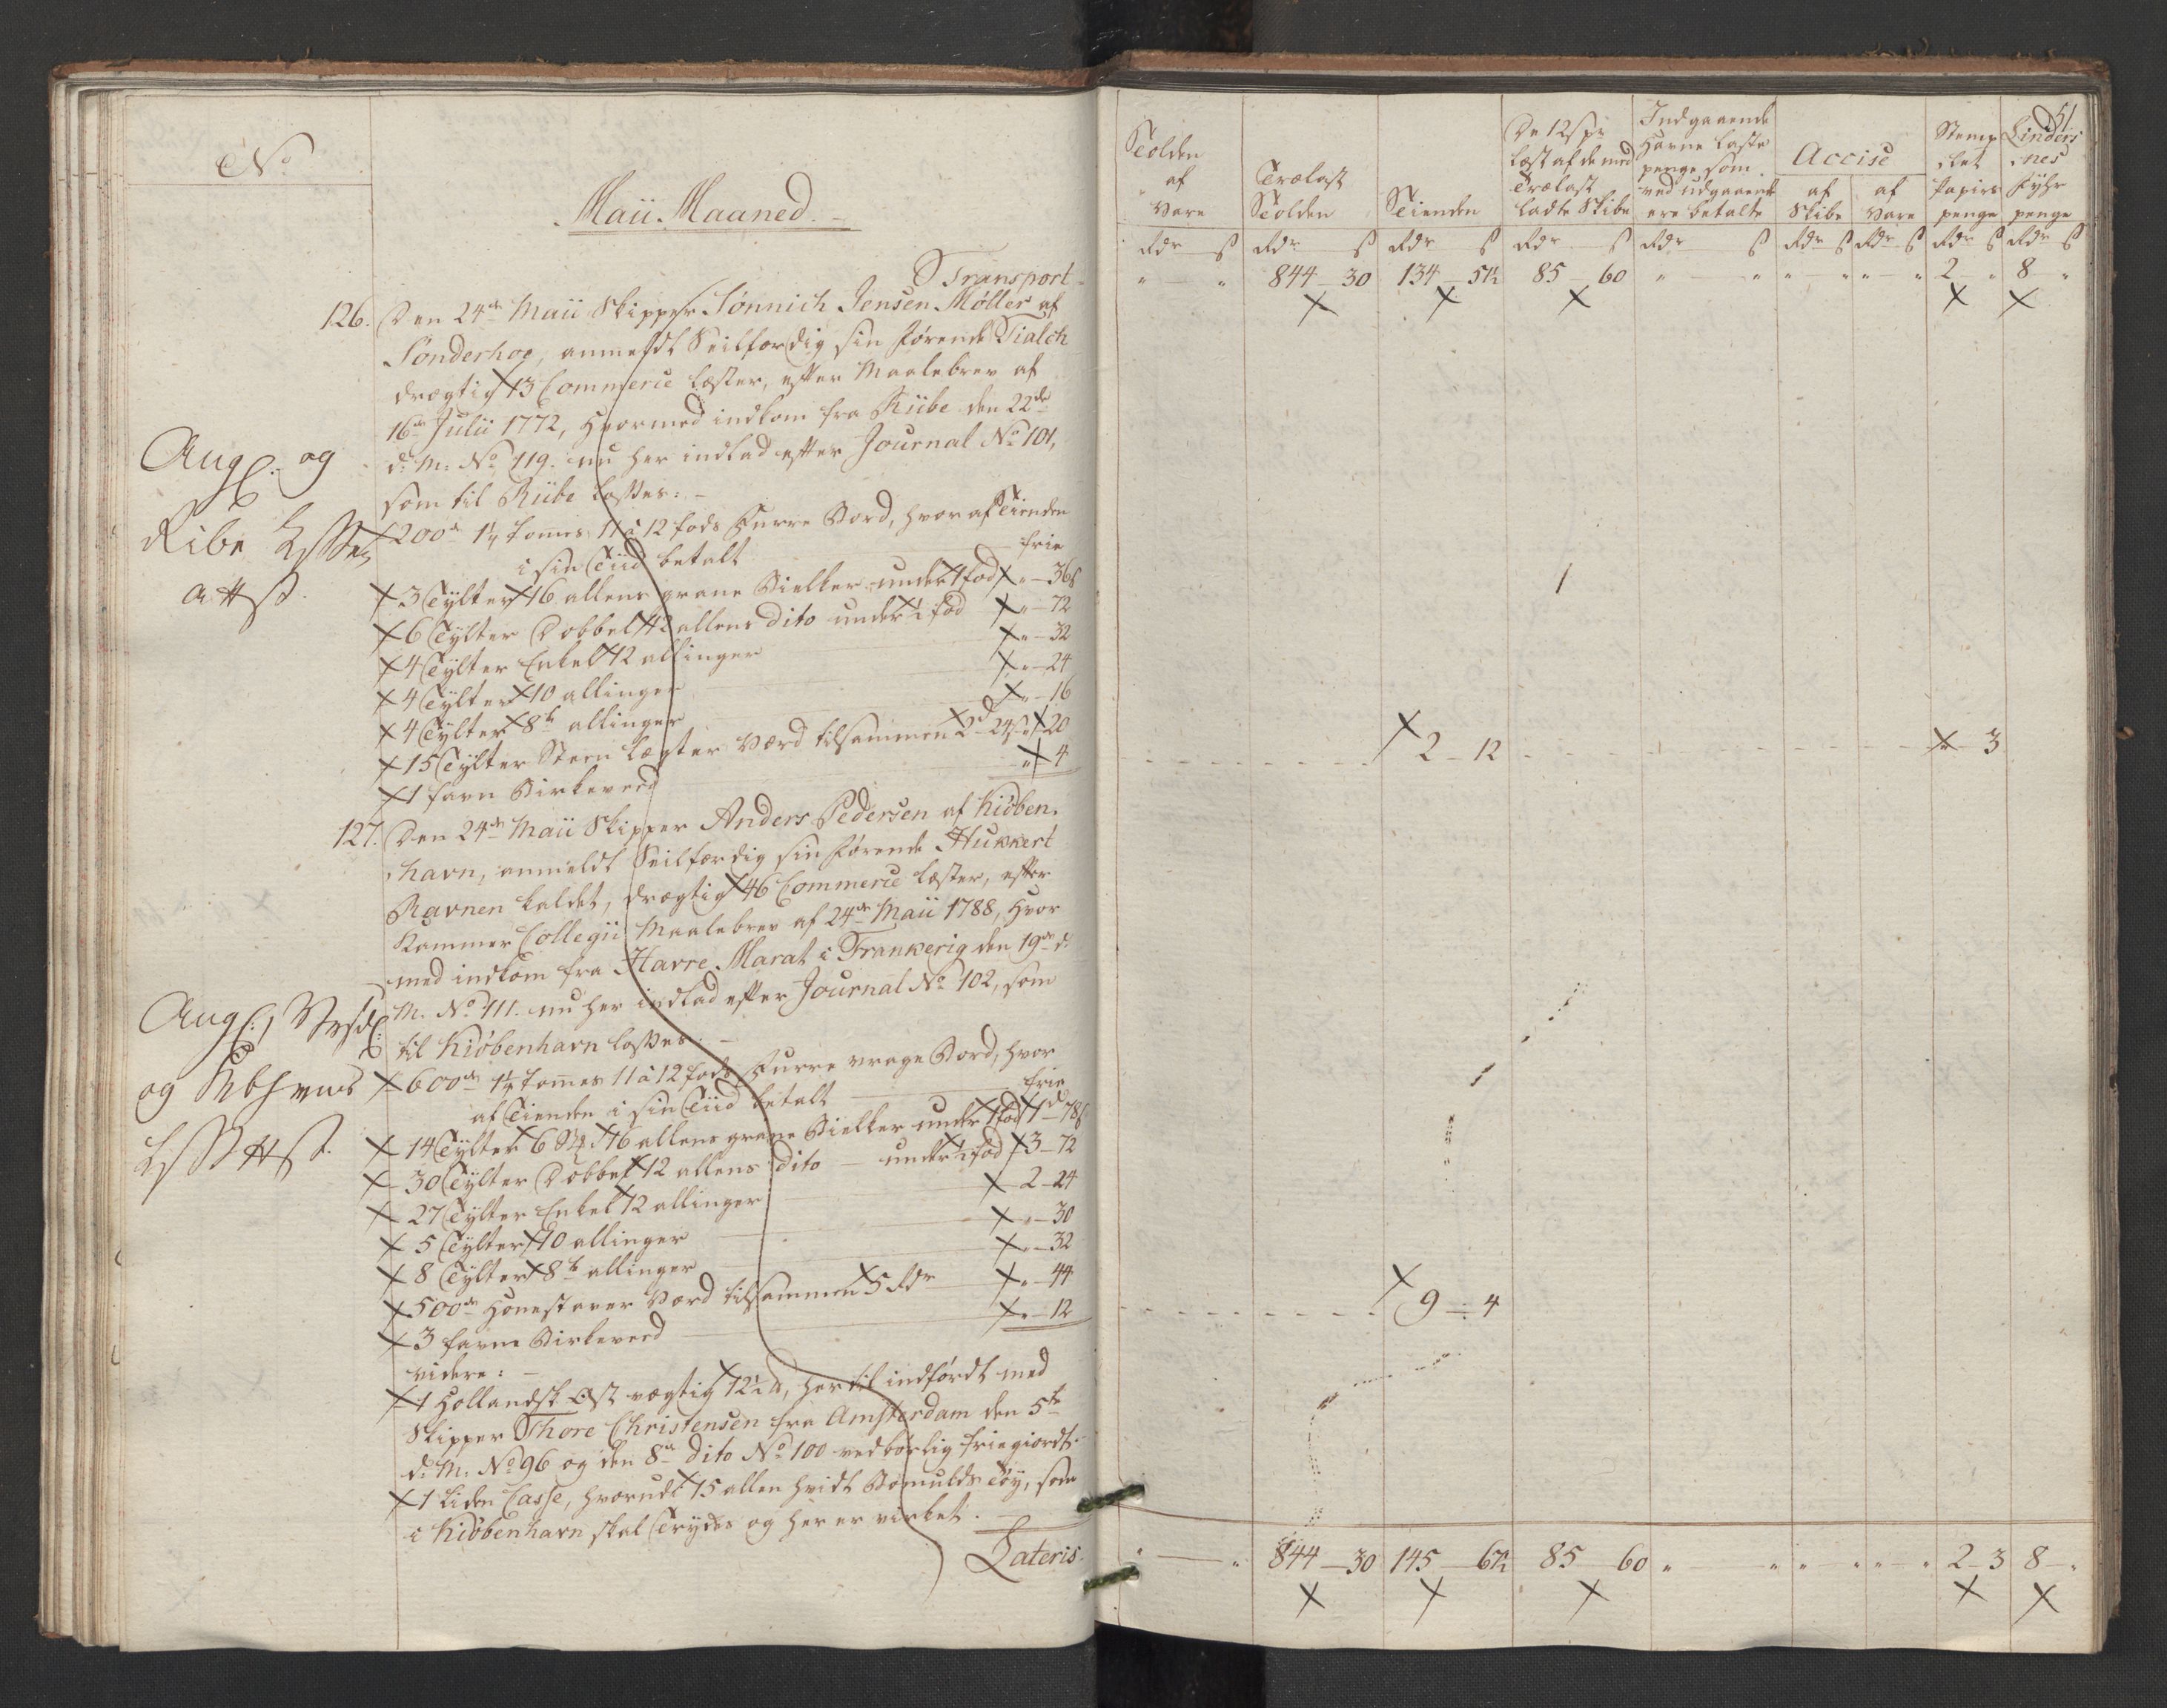 No
Maii Maaned.
Transport
126. Den 24de Maii Skipper Sönnich Jensen Møller af
Sönderhoe, anmeldt Seilfærdig sin førende Tialch
drægtig 13 Commerce Læster, efter Maalebrev af
16de Julii 1772, hvormed indkom fra Riibe den 22de
d: M: No 119. nu her indlad efter Journal No 101,
som til Riibe losses: -
Angl. og
Ribe
attst.
200de 1¼ tommes 11 à 12 fods Furre Bord, hvoraf Tienden
i sin Tiid betalt frie
3 Tylter 16 allens grane Bielker under 1 fod " - 36 s
6 Tylter Dobbelt 12 allens dito under ½ fod " - 72
4 Tylter Enkelt 12 allinger " - 32
4 Tylter 10 allinger " - 24
4 Tylter 8te allinger " - 16
15 Tylter Steen Lægter værd tilsammen 2 d 24 s " 20
1 favn Birkeveed " 4
127. Den 24de Maii Skipper Anders Pedersen af Kiöben-
havn, anmeldt Seilfærdig sin førende Hukkert
Ravnen kaldet, drægtig 46 Commerce Læster, efter
Kammer Collegii Maalebrev af 24de Maii 1788, hvor
med indkom fra Havre Marat i Frankerig den 19de d:
M. No 111. nu her indlad efter Journal No 102, som
til Kiöbenhavn losses: -
Angl:,
og Kbhavns
attst.
600de 1¼ tommes 11 à 12 fods Furre vrage Bord, hvor
af Tienden i sin Tiid betalt frie
14 Tylter 6 St. 16 allens grane Bielker under 1 fod 1 d - 78 s
30 Tylter Dobbelt 12 allens dito - under ½ fod 3 - 72
27 Tylter Enkel 12 allinger 2 - 24
5 Tylter 10 allinger " - 30
8 Tylter 8te allinger " - 32
500de Hønestaver værd tilsammen 5 Rdr " - 44
3 favne Birkeveed " - 12
videre: -
1 Hollandsk Ost vægtig 12½ lb, hertil indført med
Skipper Thore Christensen fra Amsterdam den 5te
d: M: No 96 og den 8de dito No 100 vedbørlig friegiordt.
1 liden Casse, hvorudi 15 allen hvidt Bomulds Töy, som
i Kiöbenhavn skal Trydes og her er virket.
Lateris
51
Tolden af Vare
Trælast Tolden
Tienden
De 12 s pr Læst af de med Trælast ladte Skibe
Indgaaende Havne Laste penge som ved udgaaende ere betalte
Accise
af Skibe
af Vare
Stemp let Papiirs penge
Linders nes Fyhr penge
Rdr s Rdr s Rdr s Rdr s Rdr s Rdr s Rdr s Rdr s Rdr s
" - " 844 - 30 134 - 51½ 85 - 60 " - " " - " " - " 2 - " 8 - "
2 - 12 " - 3
9 - 4
" - " 844 - 30 145 - 67½ 85 - 60 " - " " - " " - " 2 - 3 8 - "